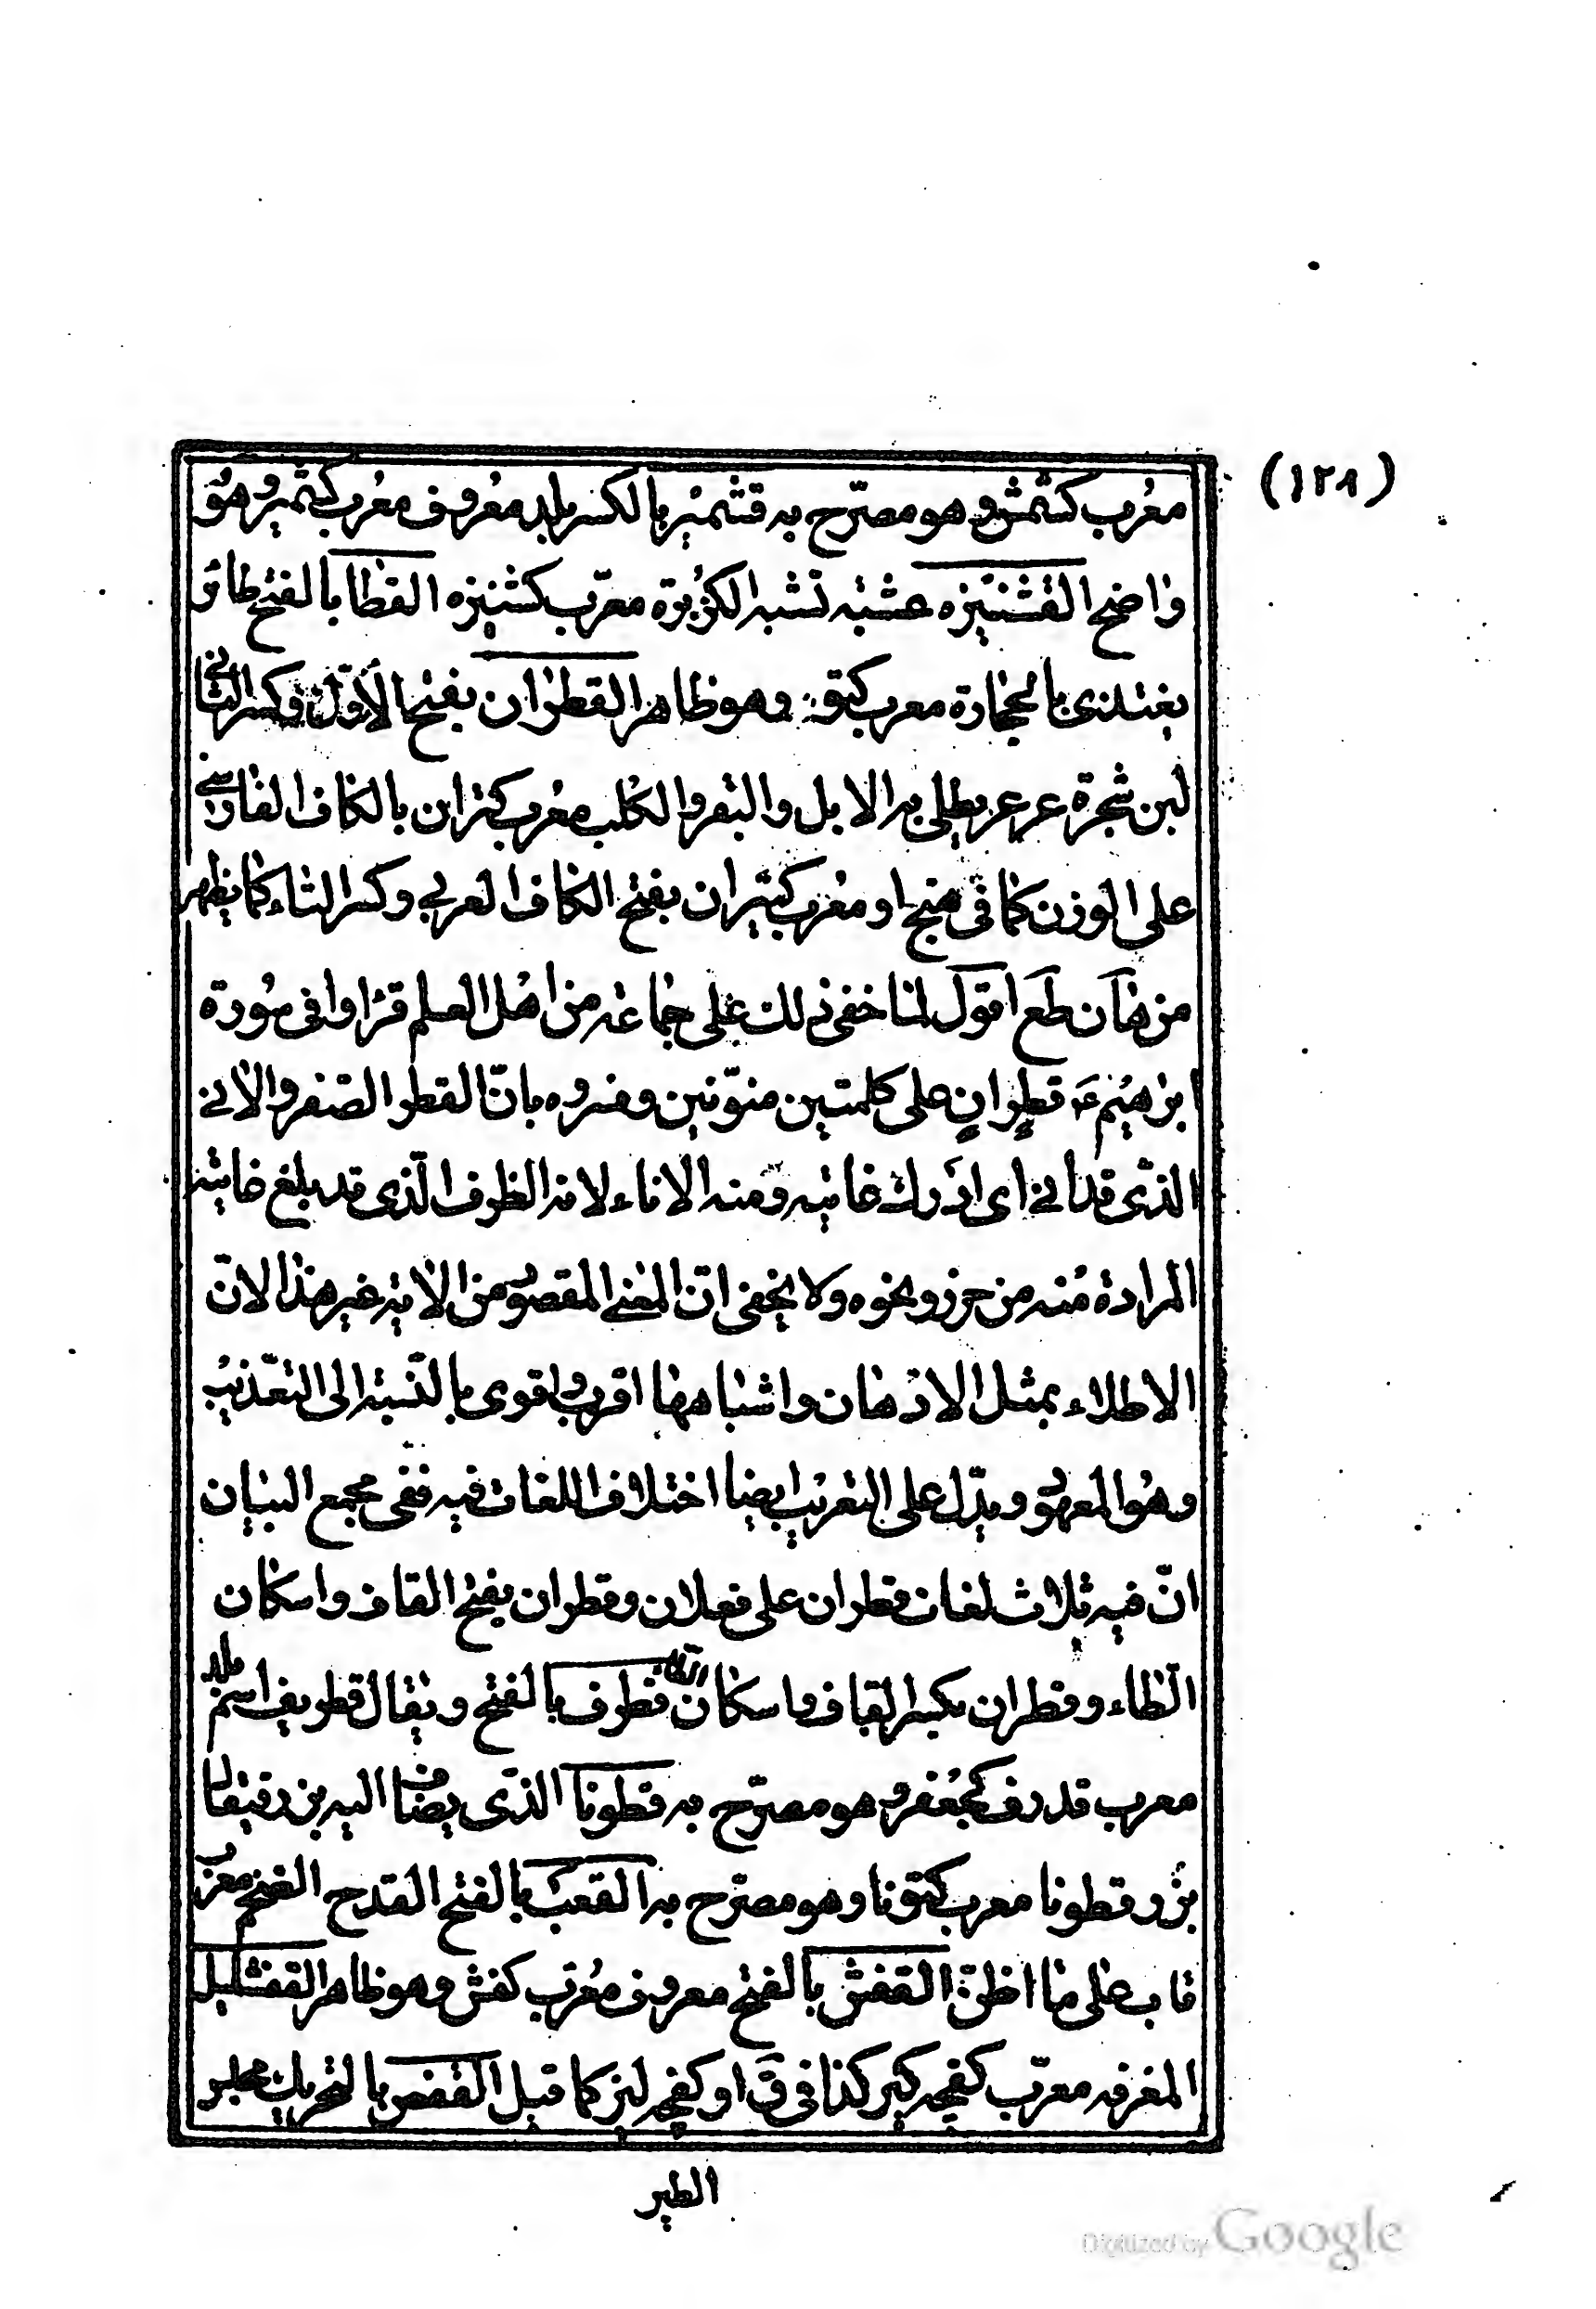 (١٢٨)
معرب كشمش وهو مصرّح به قشمير بالكسر بلد معروف معرب كشمير وهو
واضح القشنيزه عشبة تشبه الكزبرة معرّب كشنيزه القطا بالفتح طائر
يغتذى بالحجارة معرب كتو وهو ظاهر القطران بفتح الأوّل وكسر الثانى
لبن شجرة عرعر يطلى به الابل والبقر والكلب معرب كتران بالكاف الفارسى
على الوزن كما فى منج او معرب كتيران بفتح الكاف العربي وكسر التاء كما يظهر
من هان طع اقول لما خفى ذلك على جماعة من اهل العلم قراوا فى سورة
ابرهيم ع قطرٍ انٍ على كلمتين منوّنين وفسروه بانّ القطر الصّفر والانى
الذّى قد انى اى ادرك غايته ومنه الاناء لانه الظرف الّذى قد بلغ غايته
المرادة منه من حرز ونحوه ولا يخفى انّ المعنى المقصود من الاية غير هذا لانّ
الاطلاء بمثل الادهان واشباهها اقرب واقوى بالنّسبة الى التعذيب
وهو المعهود ويدّل على التعريب ايضا اختلاف اللغات فيه ففى مجمع البيان
انّ فيه ثلاث لغات قطران على فعلان وقطران بفتح القاف واسكان
الطاء وقطران بكسر القاف واسكان الطاء قطوف بالفتح ويقال قطويف اسم بلد
معرب قدرف كجعفر وهو مصرّح به قطونا الذّى يضاف اليه بزر فيقال
بزر قطونا معرب كتونا وهو مصرّح به القعب بالفتح القدح الضخم معرب
قاب على ما اظنّ القفش بالفتح معروف معرّب كفش وهو ظاهر القفشليل
المغرفه معرّب كفچه كير كذا فى ق او كفچه ليز كما قيل القفص بالتحريك محبس
الطير
Digitized by Google